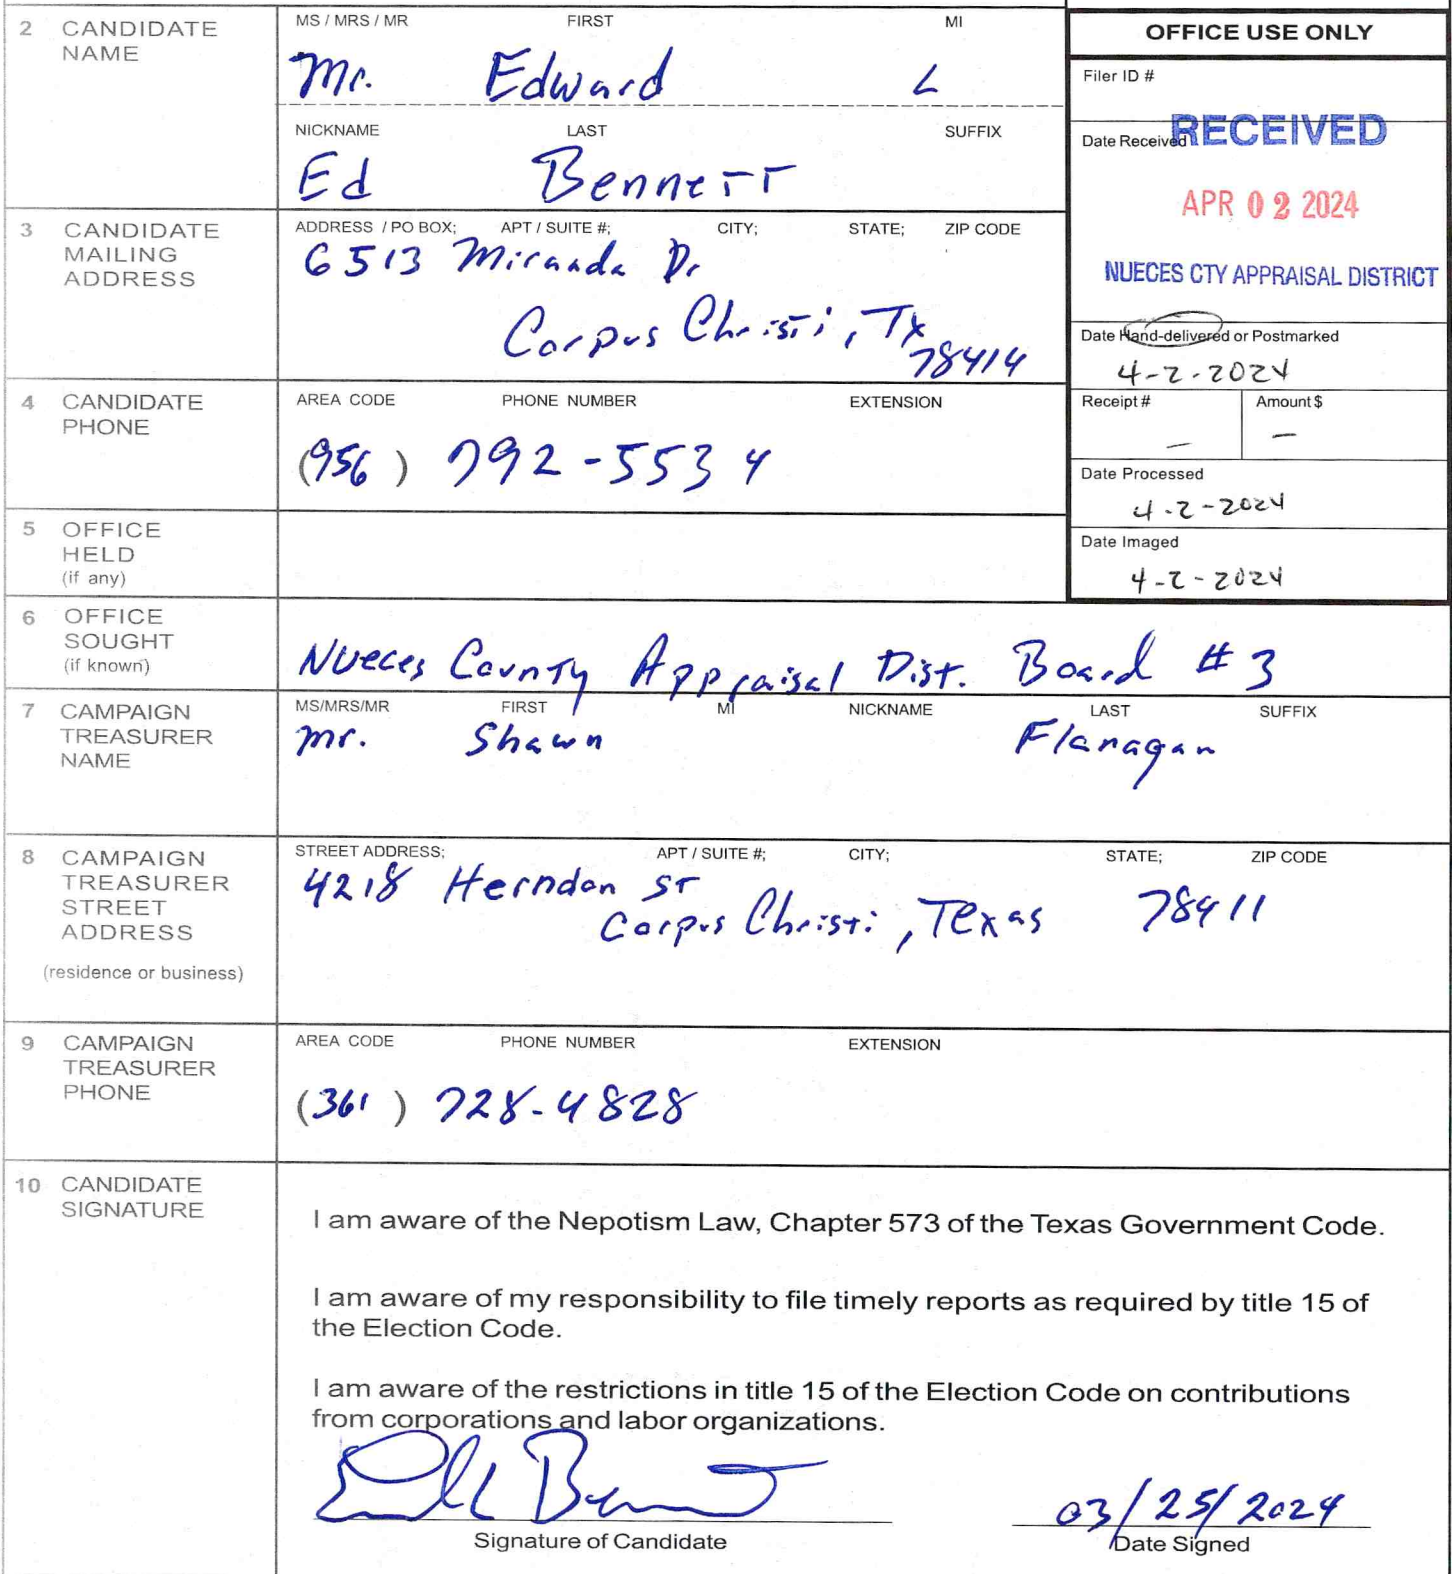 2 CANDIDATE NAME
MS / MRS / MR FIRST MI
Mr. Edward L
NICKNAME LAST SUFFIX
Ed Bennett
OFFICE USE ONLY
Filer ID #
Date Received
RECEIVED
APR 02 2024
NUECES CTY APPRAISAL DISTRICT
Date Hand-delivered or Postmarked
4-2-2024
Receipt # Amount $
– –
Date Processed
4-2-2024
Date Imaged
4-2-2024
3 CANDIDATE MAILING ADDRESS
ADDRESS / PO BOX; APT / SUITE #; CITY; STATE; ZIP CODE
6513 Miranda Dr
Corpus Christi, Tx
78414
4 CANDIDATE PHONE
AREA CODE PHONE NUMBER EXTENSION
(956) 792-5534
5 OFFICE HELD
(if any)
6 OFFICE SOUGHT
(if known)
Nueces County Appraisal Dist. Board #3
7 CAMPAIGN TREASURER NAME
MS/MRS/MR FIRST MI NICKNAME LAST SUFFIX
Mr. Shawn Flanagan
8 CAMPAIGN TREASURER STREET ADDRESS
(residence or business)
STREET ADDRESS; APT / SUITE #; CITY; STATE; ZIP CODE
4218 Herndon St
Corpus Christi, Texas 78411
9 CAMPAIGN TREASURER PHONE
AREA CODE PHONE NUMBER EXTENSION
(361) 728-4828
10 CANDIDATE SIGNATURE
I am aware of the Nepotism Law, Chapter 573 of the Texas Government Code.
I am aware of my responsibility to file timely reports as required by title 15 of
the Election Code.
I am aware of the restrictions in title 15 of the Election Code on contributions
from corporations and labor organizations.
03/25/2024
Signature of Candidate Date Signed